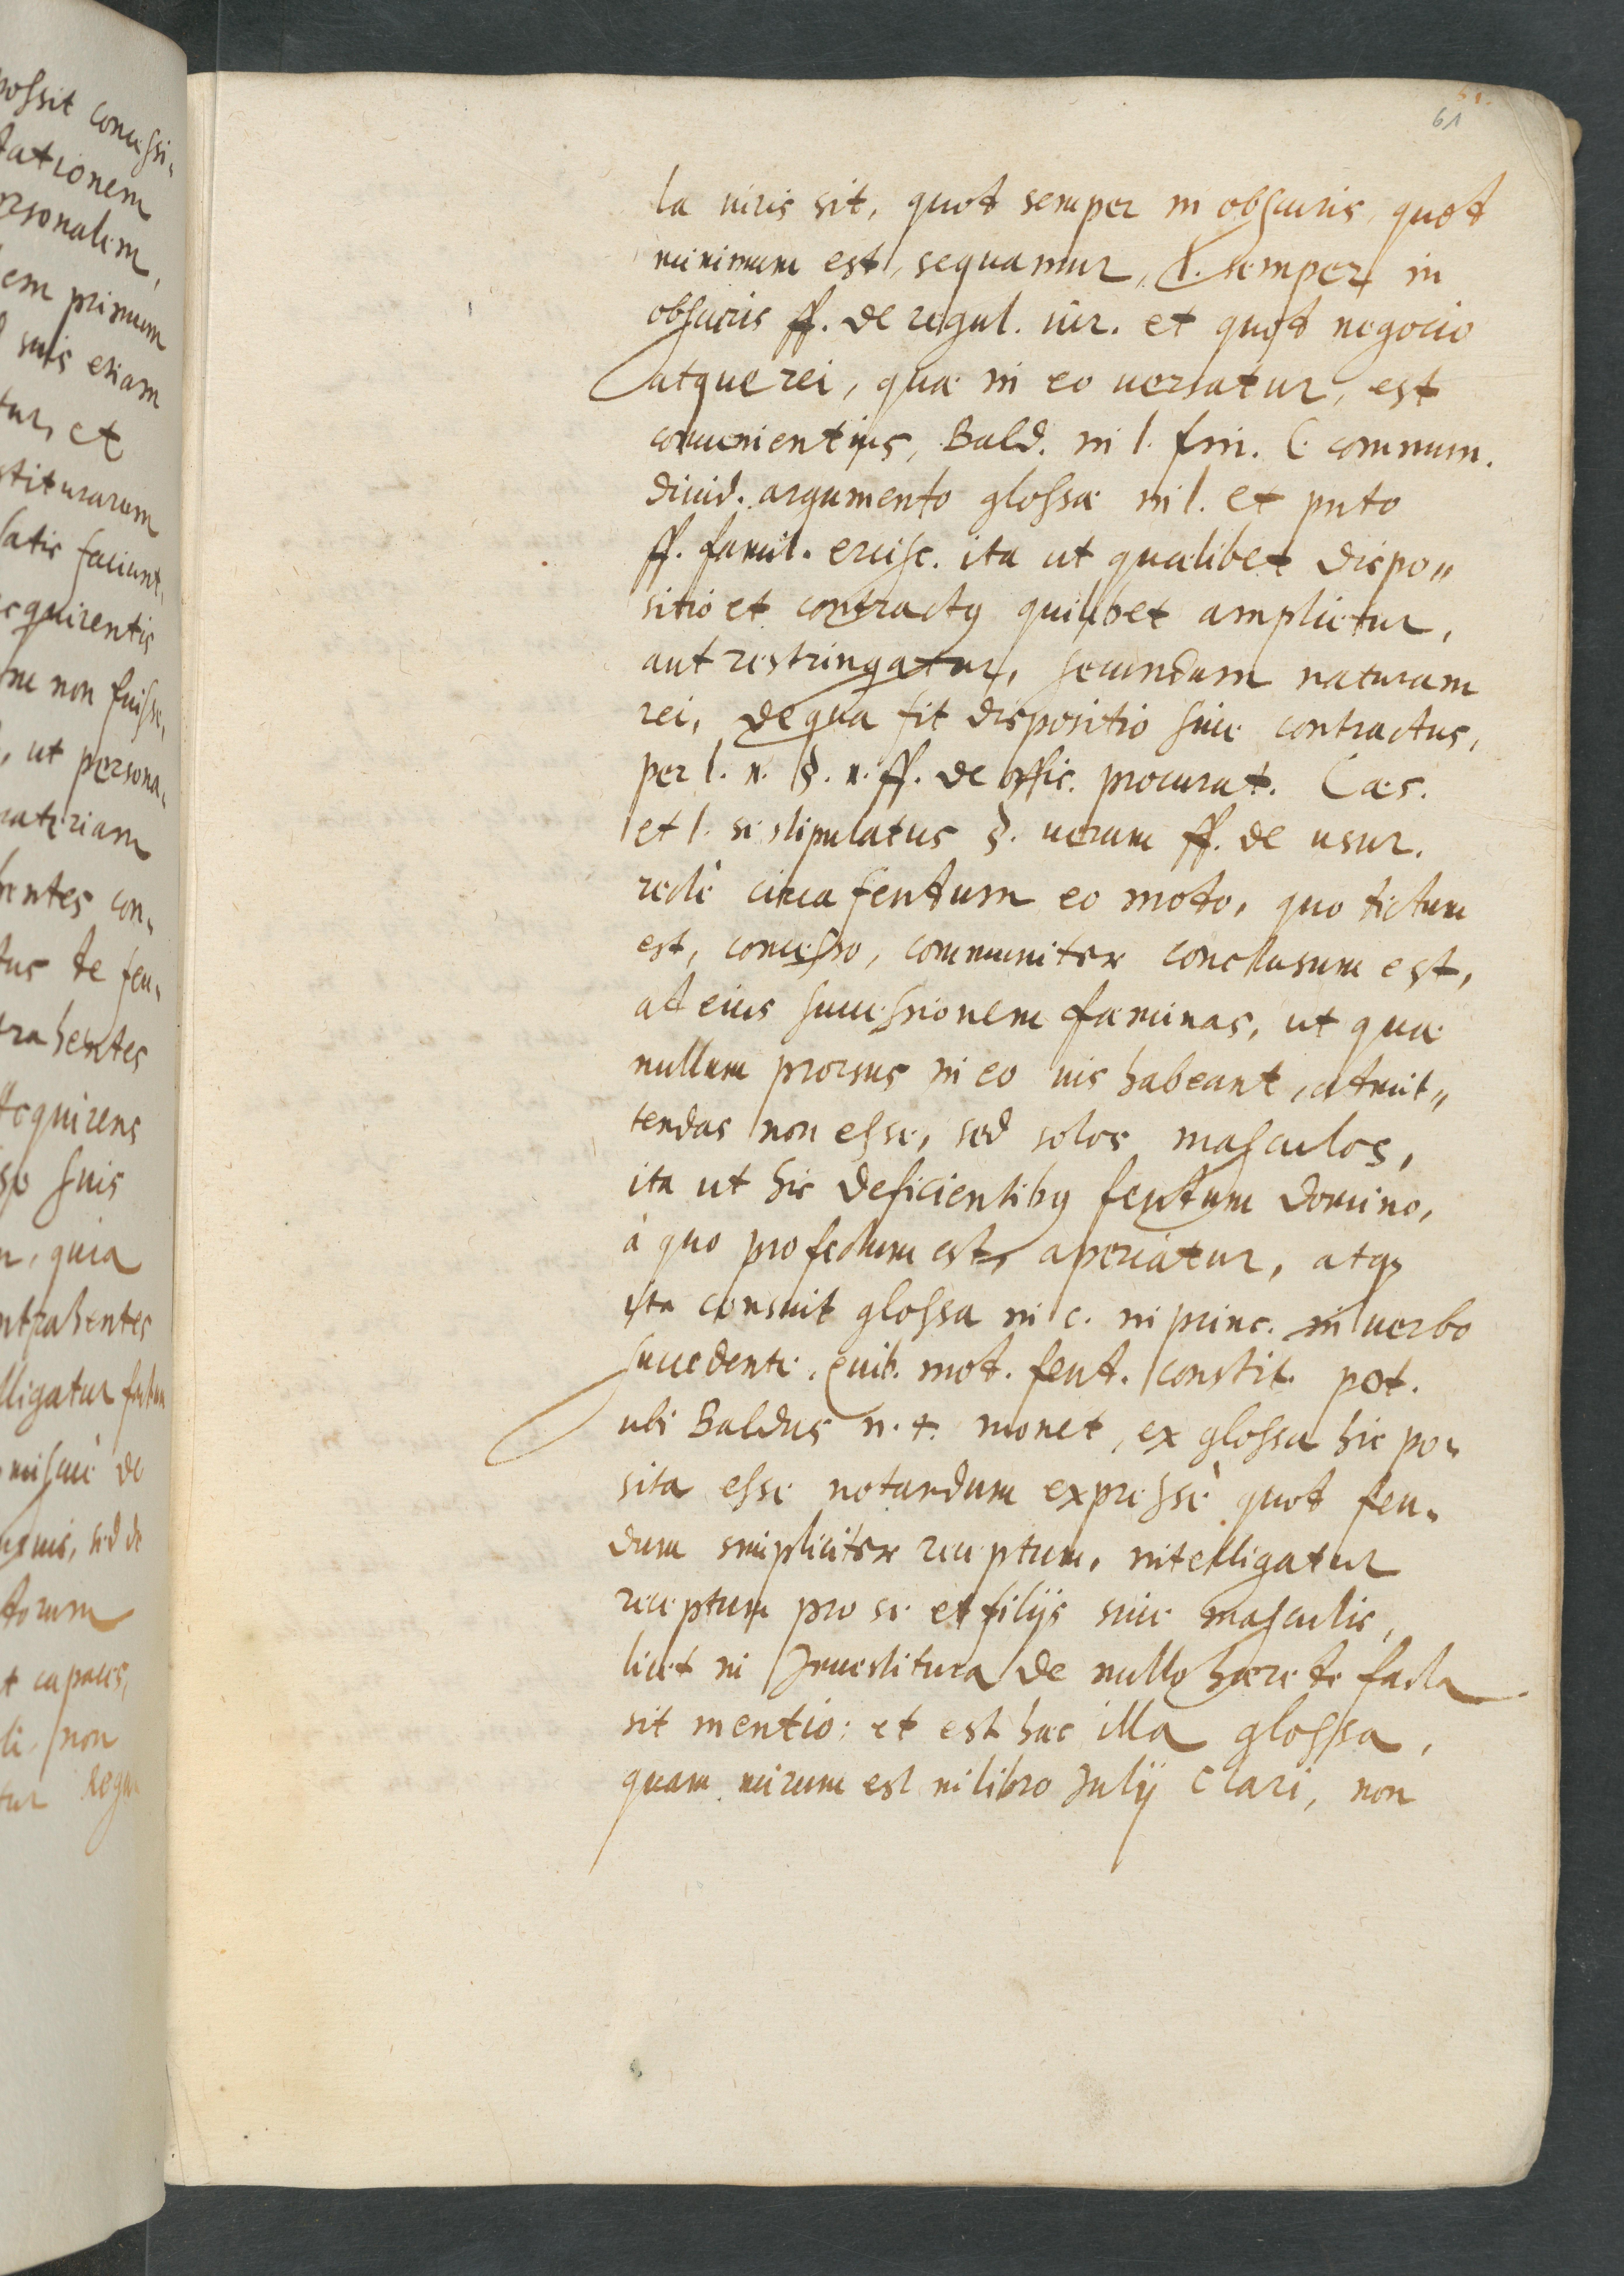 possit concessi-
tationem
ersonalem,
em primum
suis etiam
tur, et
stiturarum
satis faciunt,
acquirentis
ne non fuisse,
, ut persona-
materiam
hentes con-
tus de feu-
trahentes
Acquirens
suis
, quia
ntrahentes
lligatur
de
, sed de
torum
t capaces,
li, non
tur
61.
61
la iuris sit, quod semper in obscuris, quod
minimum est, sequamur, l. semper in
obscuris ff. de regul. iur. et quod negocio
atque rei, quæ in eo uersatur, est
conuenientius, Bald. in l. fin. C. commun.
diuid. argumento glossæ in l. et puto
ff. famil. ercisc. ita ut quælibet dispo„
sitio et contractus quilibet amplietur,
aut restringatur, secundum naturam
rei, de qua fit dispositio siue contractus,
per l. 1. §. 1. ff. de offic. procurat. Cæs.
et l. si stipulatus §. uerum ff. de usur.
rectè circa feudum eo modo, quo dictum
est, concesso, communiter conclusum est,
ad eius successionem fæminas, ut quæ
nullum prorsus in eo ius habeant, admit„
tendas non esse, sed solos masculos,
ita ut his deficientibus feudum domino,
à quo profectum est, aperiatur, atq;
ita censuit glossa in c. in princ. in uerbo
succedente. Quib. mod. feud. constit. pot.
ubi Baldus n. 4. monet, ex glossa hic po-
sita esse notandum expressè quod feu-
dum simpliciter receptum, intelligatur
receptum pro se et filijs suis masculis,
licet in Inuestitura de nullo hærede facta
sit mentio: et est hæc illa glossa,
quam mirum est in libro Julij Clari, non